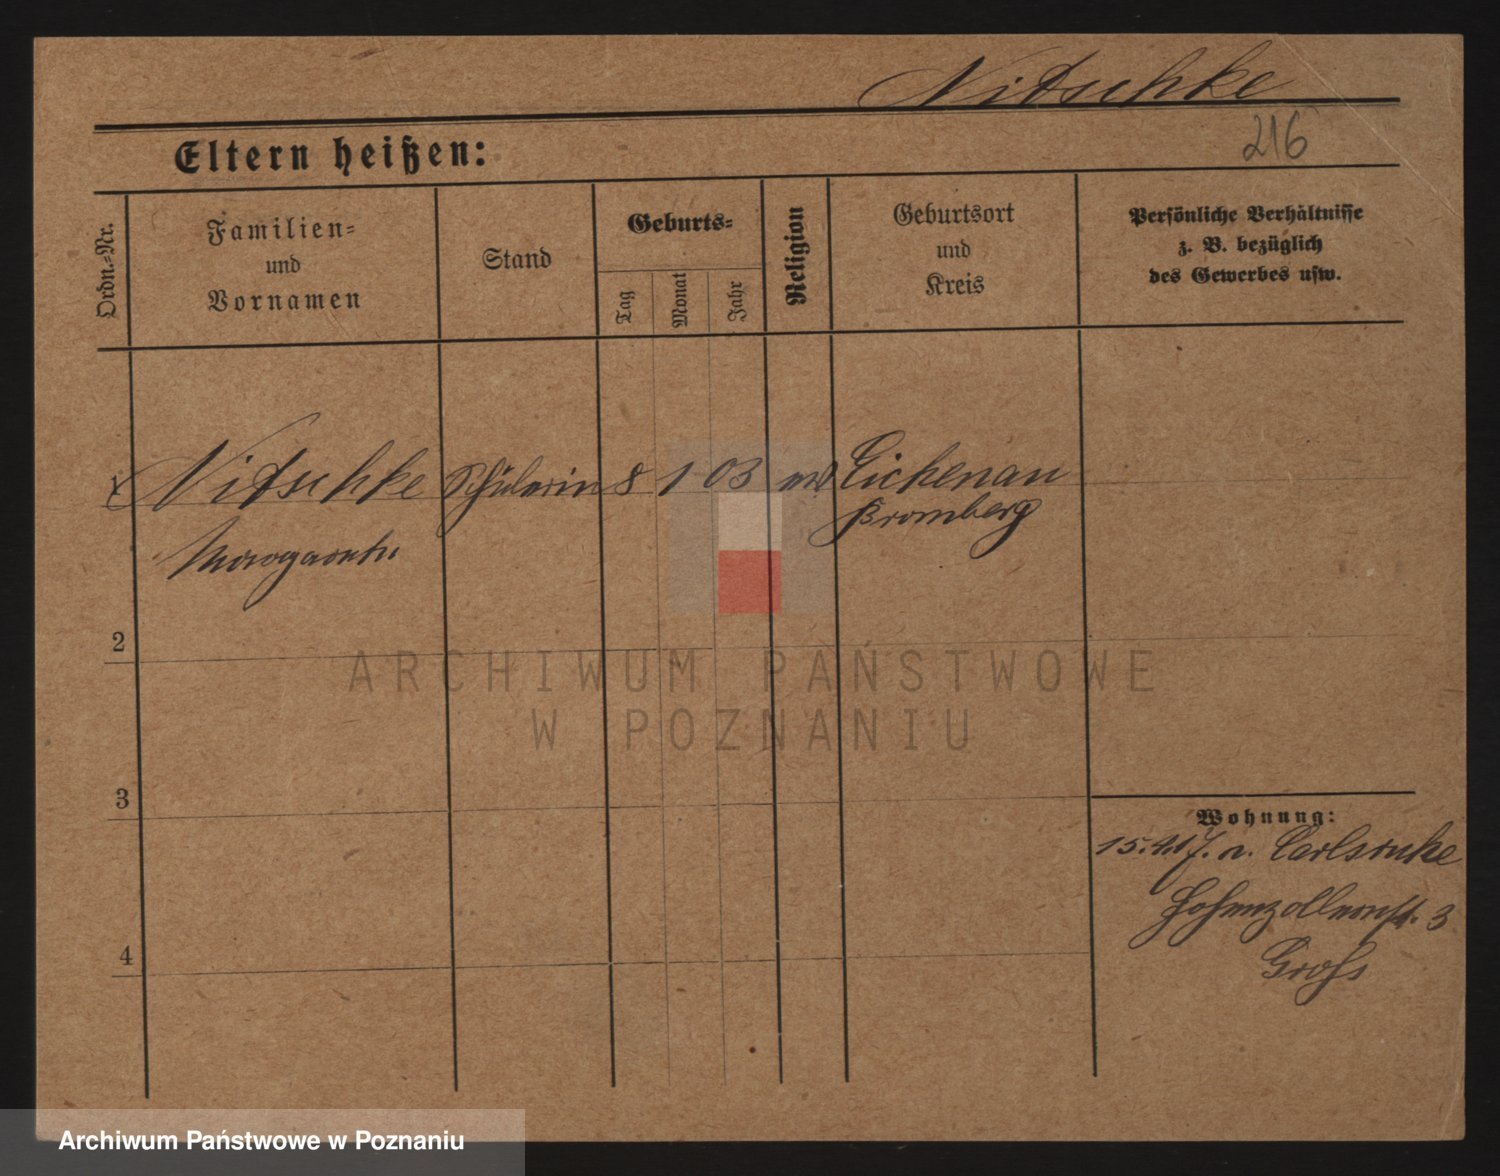 Nitschke
216
Eltern heißen:
Ordn.-Nr.
Familien-
und
Vornamen
Stand
Geburts-
Tag
Monat
Jahr
Religion
Geburtsort
und
Kreis
Persönliche Verhältnisse
z. B. bezüglich
des Gewerbes usw.
1 Nitschke Schülerin 8 1 03 Eichenau
Margarethe Bromberg
2
3
4
Wohnung:
15.4.17. n. Carlsruhe
Hohenzollernst. 3
Groß
ARCHIWUM PAŃSTWOWE
W POZNANIU
Archiwum Państwowe w Poznaniu